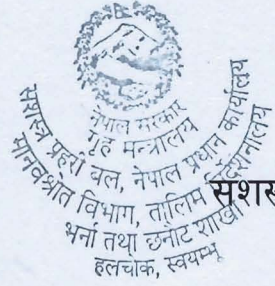 नेपाल सरकार
गृह मन्त्रालय
सशस्त्र प्रहरी बल, नेपाल प्रधान कार्यालय
मानवश्रोत विभाग, तालिम निर्देशनालय
भर्ना तथा छनौट शाखा
हलचोक, स्वयम्भू
सशस